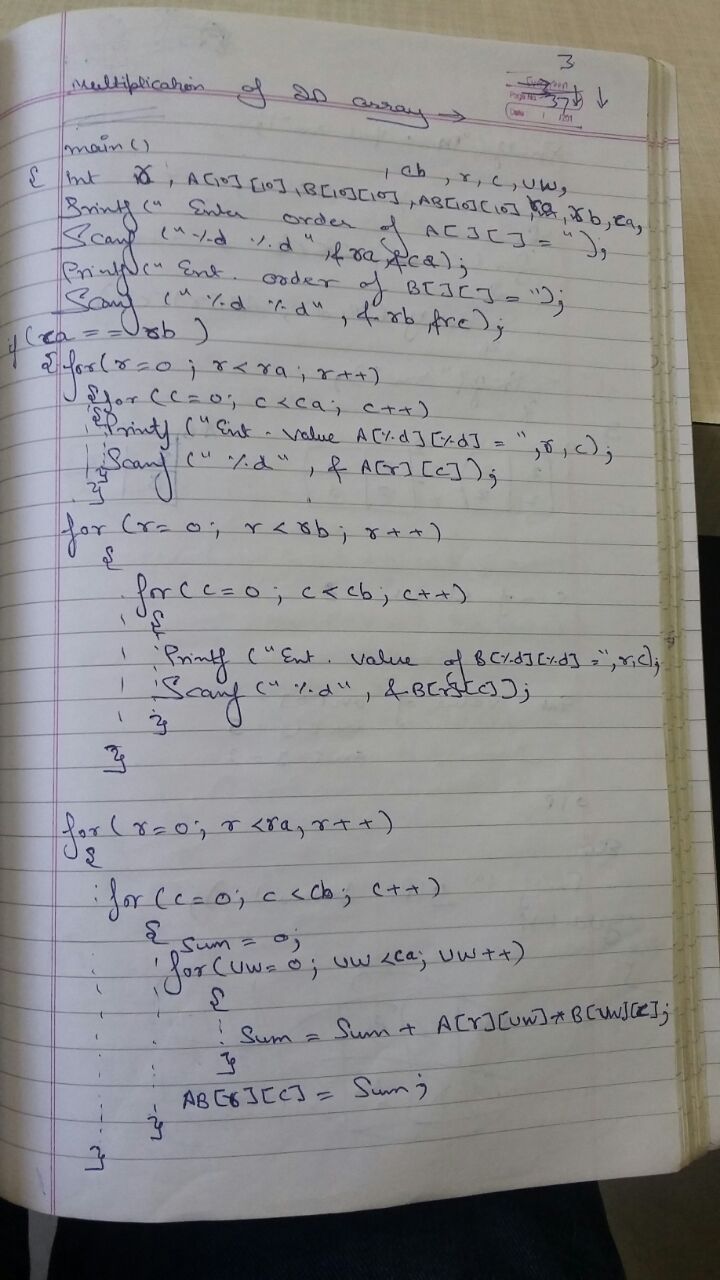 3
Multiplication of 2D array →
Page No. 37
Date / /201
main()
, cb, r, c, uw,
{ int , A[10][10], B[10][10], AB[10][10], ra, rb, ca,
Printf (" Enter order of A[][] = ");
Scanf ("%d %d", &ra, &ca);
Printf (" Ent. order of B[][] = ");
Scanf ("%d %d", & rb, );
if (ca == rb )
{ for(r=0; r<ra; r++)
{ for (c=0; c<ca; c++)
{ Printf ("Ent. value A[%d][%d] = ", r, c);
Scanf ("%d", & A[r][c]);
}
}
for (r= 0; r<rb; r++)
{
for (c=0; c<cb; c++)
{
Printf ("Ent. value of B[%d][%d] =", r,c);
Scanf ("%d", &B[r][c]);
}
}
for (r=0; r<ra, r++)
{
for (c=0; c<cb; c++)
{ Sum = 0;
for(uw=0; uw<ca; uw++)
{
Sum = Sum + A[r][uw]*B[uw][c];
}
AB[r][c] = Sum;
}
}